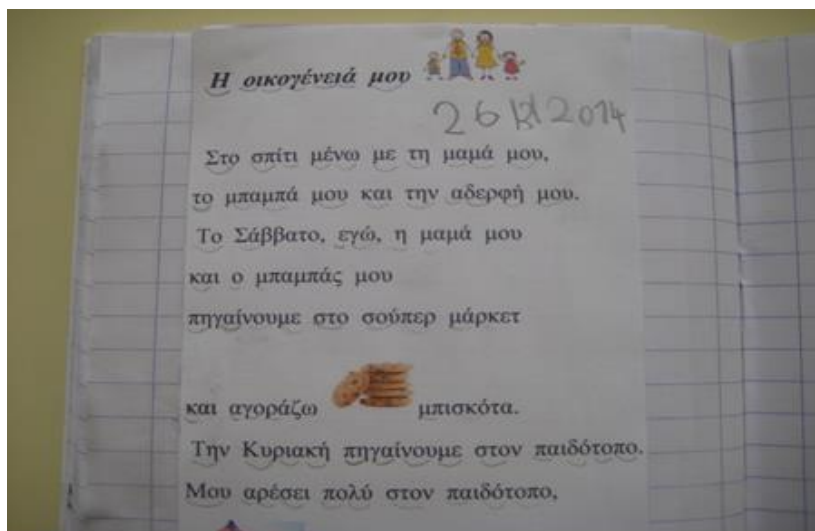 Η οικογένειά μου
26 2014
Στο σπίτι μένω με τη μαμά μου,
το μπαμπά μου και την αδερφή μου.
Το Σάββατο, εγώ, η μαμά μου
και ο μπαμπάς μου
πηγαίνουμε στο σούπερ μάρκετ
και αγοράζω μπισκότα.
Την Κυριακή πηγαίνουμε στον παιδότοπο.
Μου αρέσει πολύ στον παιδότοπο,